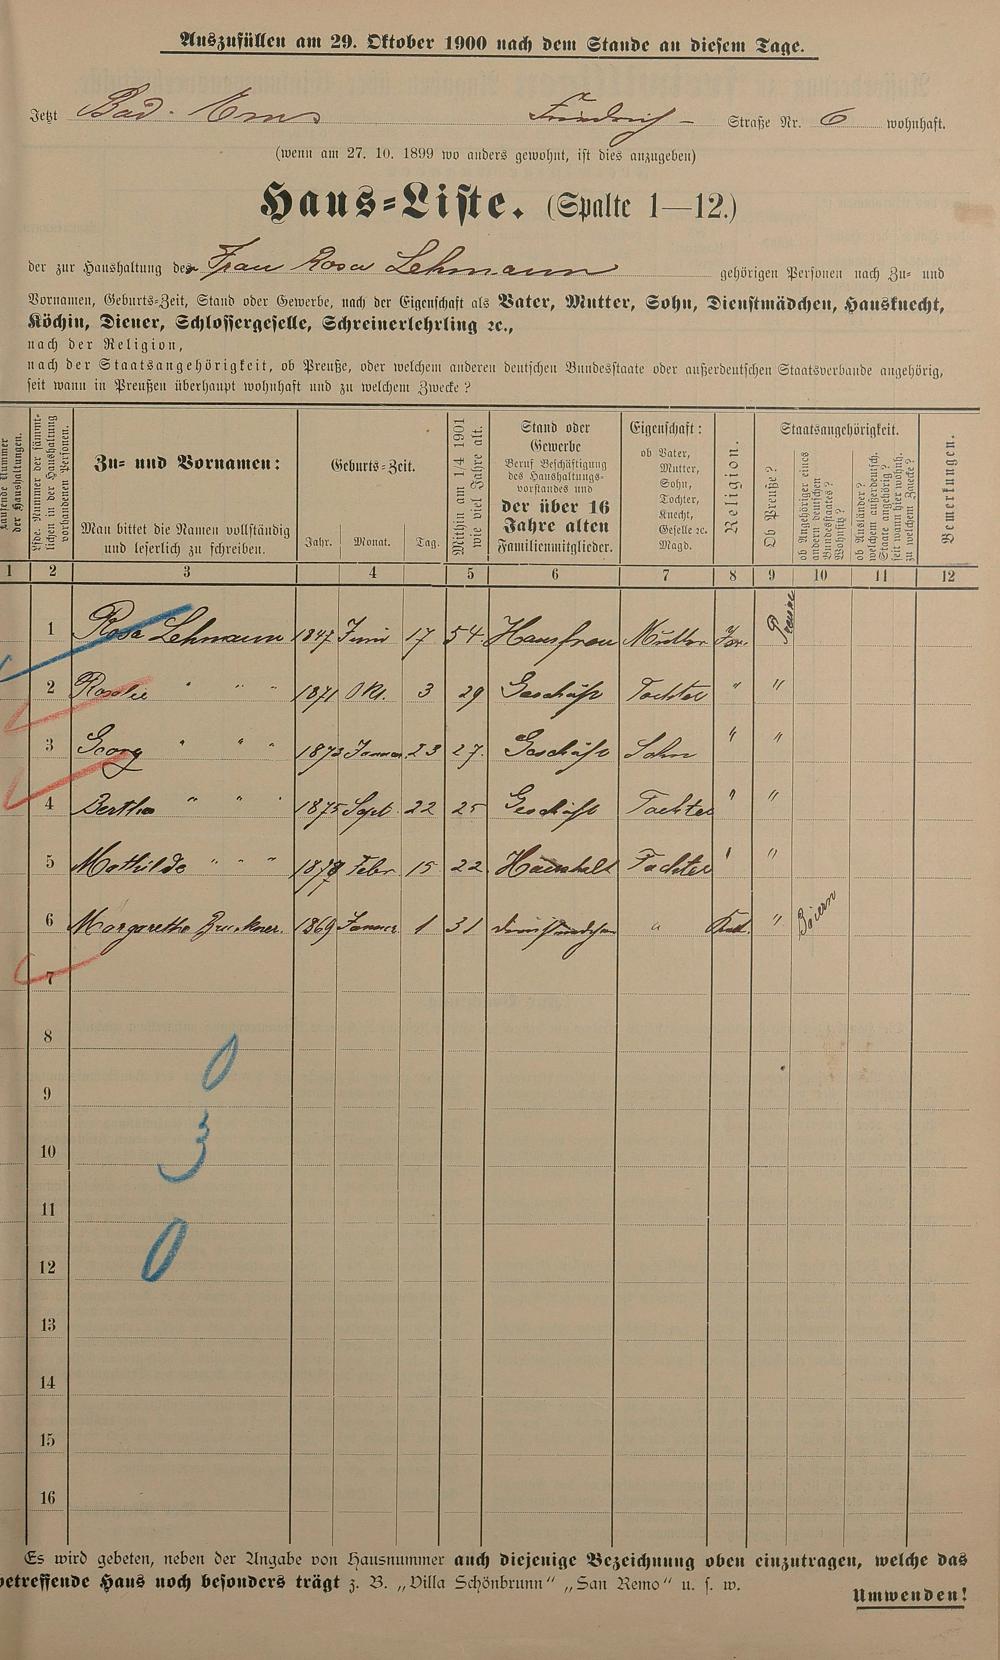 Auszufüllen am 29. Oktober 1900 nach dem Stande an diesem Tage.
Jetzt Bad-Ems Friedrich- Straße Nr. 6 wohnhaft.
(wenn am 27. 10. 1899 wo anders gewohnt, ist dies anzugeben)
Haus-Liste. (Spalte 1—12.)
der zur Haushaltung der Frau Rosa Lehmann gehörigen Personen nach Zu- und
Vornamen, Geburts-Zeit, Stand oder Gewerbe, nach der Eigenschaft als Vater, Mutter, Sohn, Dienstmädchen, Hausknecht,
Köchin, Diener, Schlossergeselle, Schreinerlehrling ꝛc.,
nach der Religion,
nach der Staatsangehörigkeit, ob Preuße, oder welchem anderen deutschen Bundesstaate oder außerdeutschen Staatsverbande angehörig,
seit wann in Preußen überhaupt wohnhaft und zu welchem Zwecke?
Laufende Nummer
der Haushaltungen.
Lfde. Nummer der sämmt-
lichen in der Haushaltung
vorhandenen Personen.
Zu- und Vornamen:
Man bittet die Namen vollständig
und leserlich zu schreiben.
Geburts-Zeit.
Jahr. Monat. Tag.
Mithin am 1/4 1901
wie viel Jahre alt.
Stand oder
Gewerbe
Beruf Beschäftigung
des Haushaltungs-
vorstandes und
der über 16
Jahre alten
Familienmitglieder.
Eigenschaft:
ob Vater,
Mutter,
Sohn,
Tochter,
Knecht,
Geselle ꝛc.
Magd.
Religion.
Staatsangehörigkeit.
Ob Preuße?
ob Angehöriger eines
andern deutschen
Bundesstaates?
Wohnsitz?
ob Ausländer?
welchem außerdeutsch.
Staate angehörig?
seit wann hier wohnh.
zu welchem Zwecke?
Bemerkungen.
1 2 3 4 5 6 7 8 9 10 11 12
1 Rosa Lehmann 1847 Juni 17 54 Hausfrau Mutter Isr. Preuße
2 Rosalie " " " 1871 Okt. 3 29 Geschäft Tochter " "
3 Georg " " " 1873 Januar 23 27. Geschäft Sohn " "
4 Bertha " " " 1875 Sept. 22 25 Geschäft Tochter " "
5 Mathilde " " " 1878 Febr. 15 22 Haushalt Tochter " "
6 Margaretha Bruckner. 1869 Januar. 1 31 Dienstmädchen " Kath. " Baiern
7
8
0
9
10
3
11
12
0
13
14
15
16
Es wird gebeten, neben der Angabe von Hausnummer auch diejenige Bezeichnung oben einzutragen, welche das
betreffende Haus noch besonders trägt z. B. „Villa Schönbrunn“ „San Remo“ u. s. w.
Umwenden!